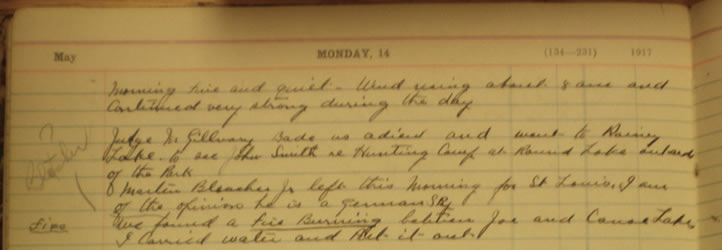 May MONDAY, 14 (134—231) 1917
Morning fine and quiet - Wind rising about 8 am and
Continued very strong during the day
Judge McGillvary Bade us adieu and went to Rainey
Lake to see John Smith re Hunting Camp at Round Lake outside
of the Park
?
Bleacher
Martin Bleacher Jr left this Morning for St Louis. I am
of the opinion he is a german Spy
Fire We found a Fire Burning between Joe and Canoe Lake
I Carried water and Put it out